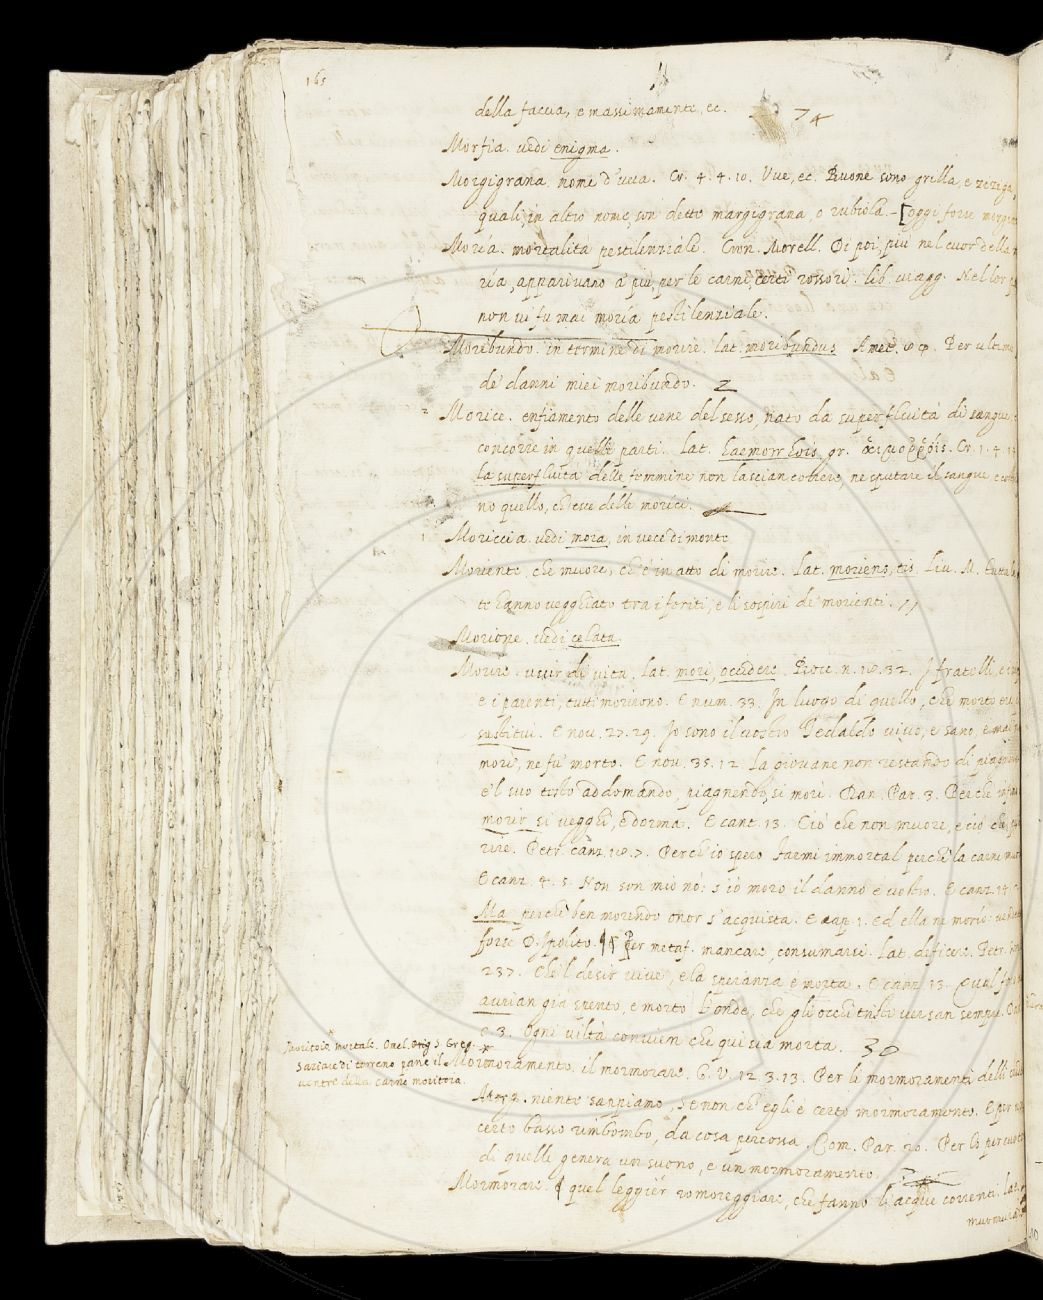 165
della faccia, e massimamente, ec. 74
Morfia. vedi enigma.
Morgigrana. nome d'uva. Cr. 4. 4. 10. Uve, ec. Buone sono grilla, e zezega,
quali, in altro nome, son dette margigrana, o rubiola. [oggi forse
Morìa. mortalità pestilenziale. Cron. Morell. Di poi, più nel cuor della
rìa, apparivano a più, per le carni, certi rossori. lib. viagg. Nel lor
non vi fu mai morìa pestilenziale.
Moribundo. in termine di morire. lat. moribundus Amet. Per ultimo
de' danni miei moribundo. 2
Morice. enfiamento delle vene del sesso, nato da superfluità di sangue,
concorre in quelle parti. lat. haemorrhois, gr. αἱμοῤῥοΐς. Cr. 1. 4.
la superfluità delle femmine non lascian correre, ne sputare il sangue
no quello, ch'esce delle morici.
Moriccia. vedi mora, in vece di monte
Morente, che muore, ch'è in atto di morire. lat. moriens, tis. Liv. M. tutta
te hanno vegghiato tra i feriti, e li sospiri de' morienti. 11
Morione. vedi celata.
Morire. uscir di vita, lat. mori, occidere. Bocc. n. 18. 32. I fratelli,
e i parenti, tutti morirono. E num. 33. In luogo di quello, che morto era,
sustituì. E nov. 27. 29. Io sono il vostro Tedaldo vivo, e sano, e mai
morì, nè fu' morto. E nov. 35. 12 la giovane non restando di piagnere
e 'l suo testo addomando, piagnendo, si morì. Dan. Par. 3. Perchè infino
morir si vegghi, e dorma. E cant. 13. Ciò che non muore, e ciò che
rire. Petr. canz. 18. 7. Perch'io spero farmi immortal perchè la carne
E canz. 4. 5. Non son mio nò: s'io moro il danno è vostro. E canz. 15.
Ma perchè ben morendo onor s'acquista. E cap. 1. Ed ella ne morìo:
forse D. Ipolito. ¶ Per metaf. mancare, consumarsi. Lat. deficere. Petr.
237. E le 'l desir vive, e la speranza è morta. E canz. 13.
aurian già spento, e morto l'onde, che gli occhi tristi versan sempre.
c. 3. Ogni viltà convien che qui sia morta. 30
moritoia mortale. Omel. Orig S. Greg.
Saziare di terreno pane il
ventre della carne moritoia.
Mormoramento. il mormorare. G. V. 12. 3. 13. Per li mormoramenti delli
niente sappiamo, se non ch'egli è certo mormoramento. E per
certo basso rimbombo, da cosa percossa. Com. Par. 20. Per lo
di quelle genera un suono, e un mormoramento.
Mormorare. quel leggier romoreggiare, che fanno l'acque correnti. lat.
murmurare